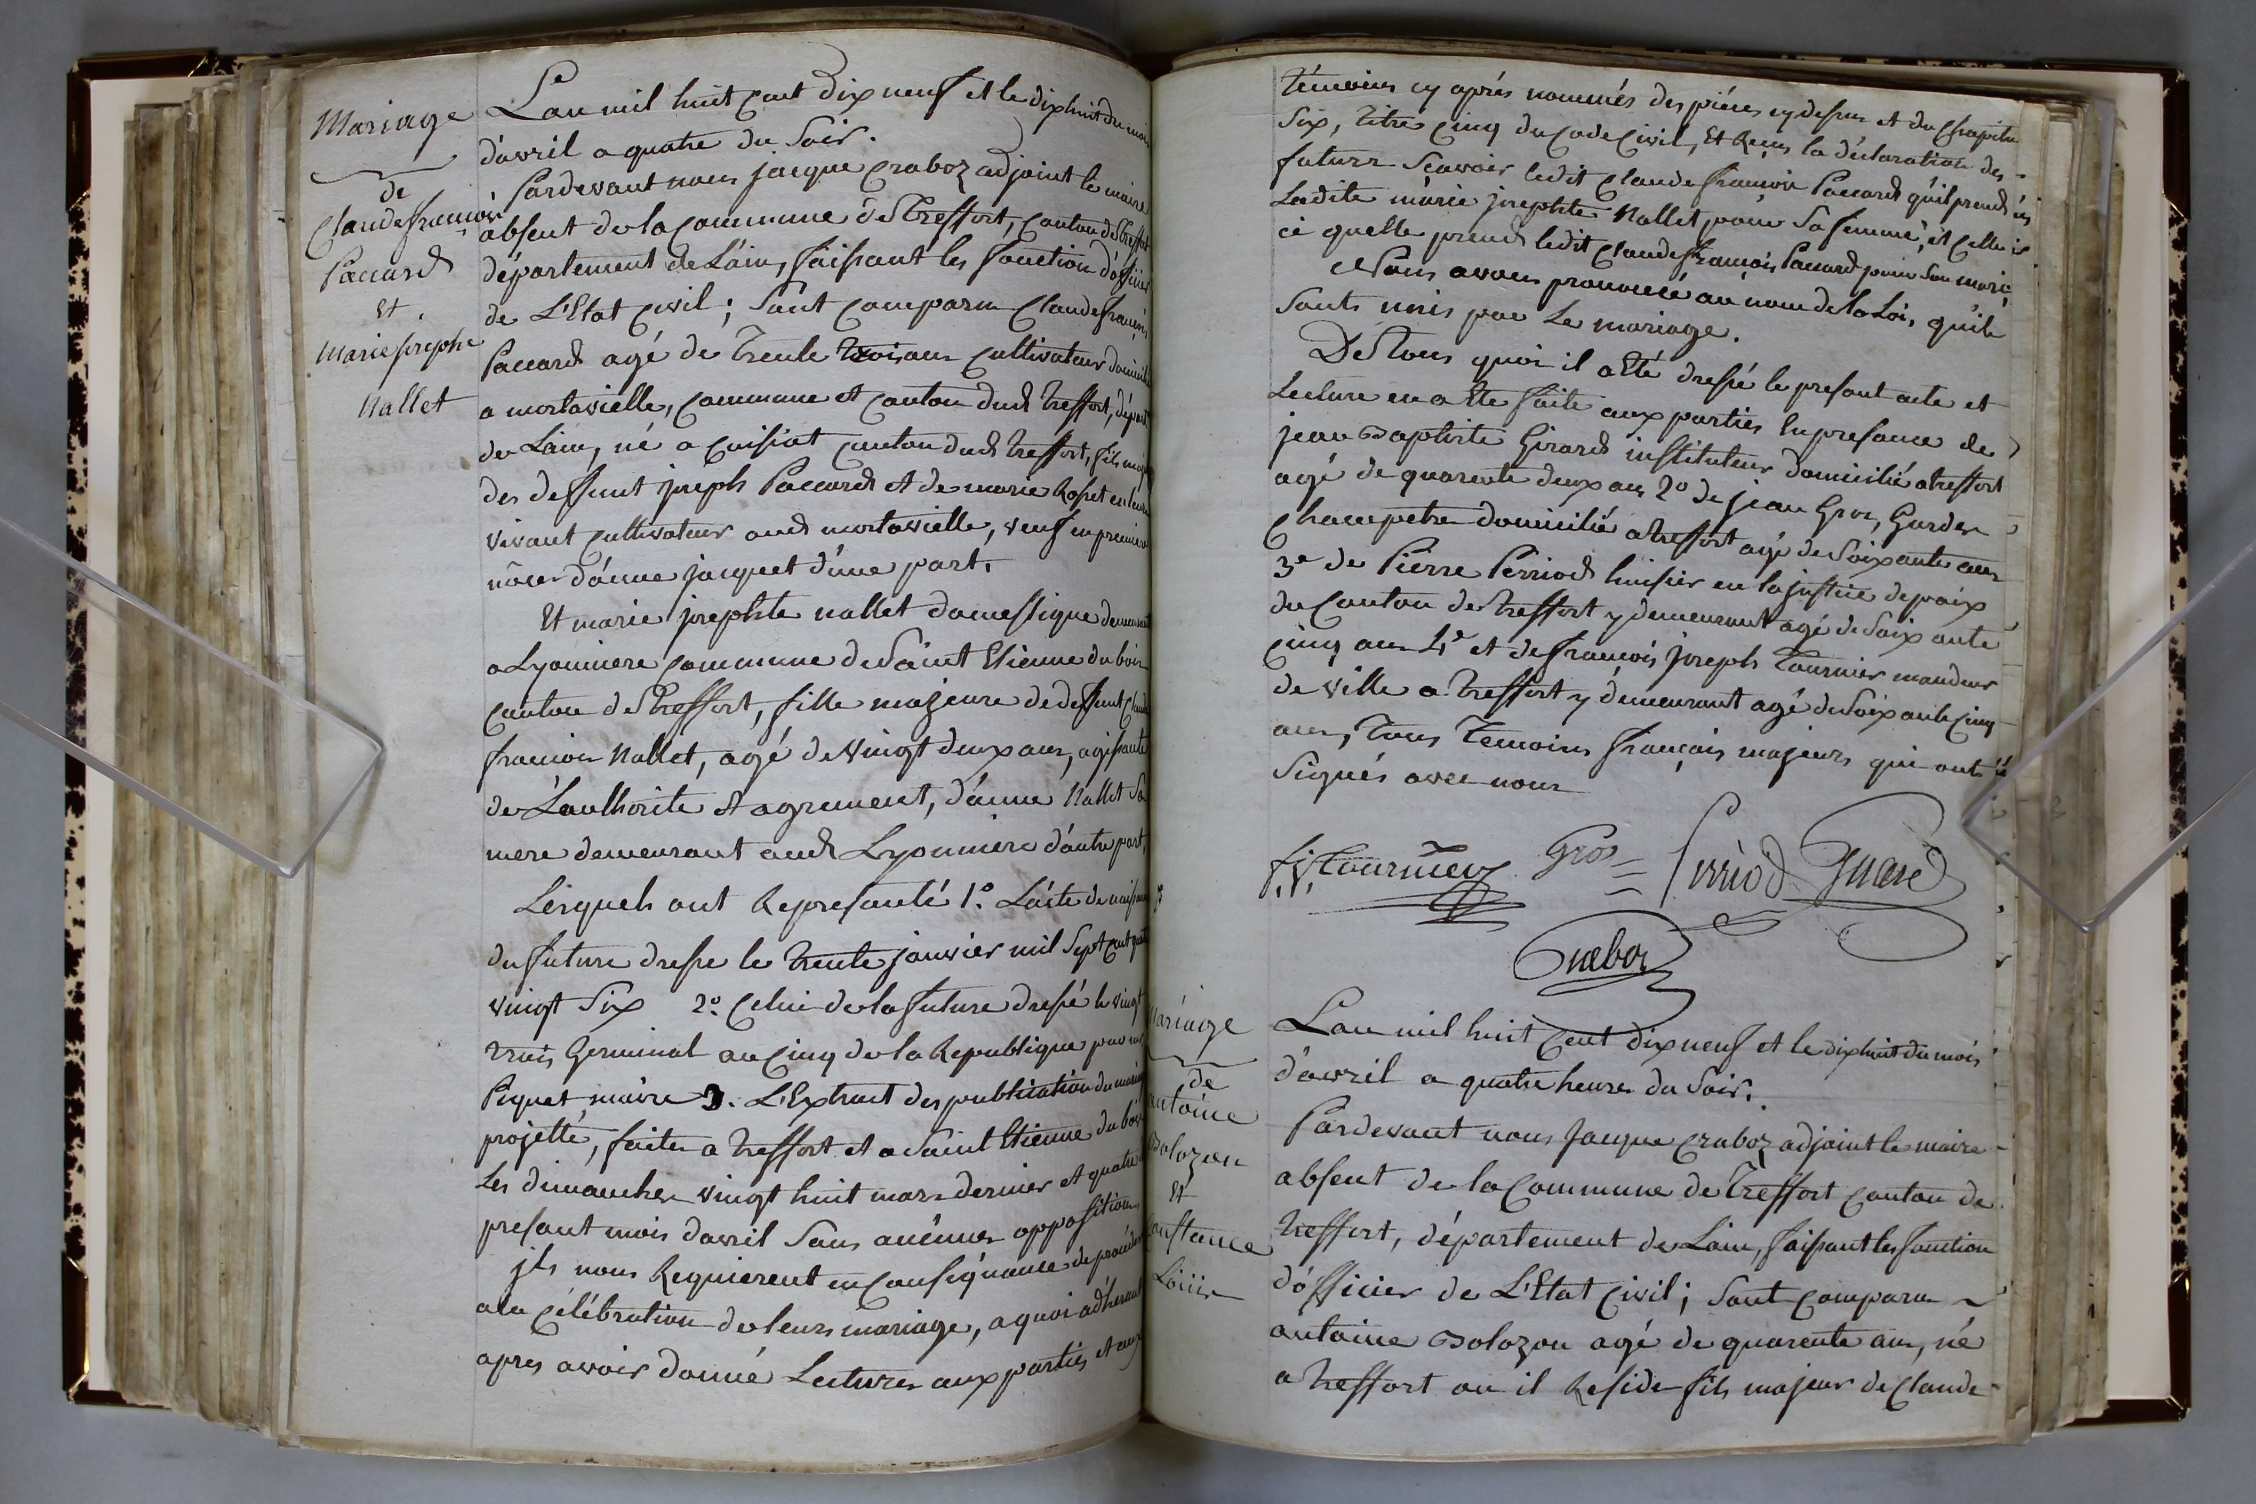 Mariage
de
Claude françois
Paccard
Et
Marie josephe
Nallet
L'an mil huit cent dix neuf et le dix huit du mois
d'avril a quatre du Soir.
Pardevant nous jacque Craboz adjoint le maire
absent de la Commune de Treffort, Canton de Treffort
département de L'ain, faissant les fonction d'officier
de L'Etat Civil; Sont Comparu Claude françois
Paccard agé de Trente Trois ans Cultivateur domicilié
a montavielle, Commune et Canton dud Treffort, départ
de Lain, né a Cuisiat Canton dud Treffort, fils majeur
des deffunt joseph Paccard et de marie Rosset en leur
vivant Cultivateur aud montavielle, veuf en premiere
nôces d'anne jacquet d'une part,
Et marie josephte nallet domestique demeurant
a Lyonniere Commune de Saint Etienne du bois
Canton de Treffort, fille majeure de deffunt Claude
francois Nallet, agé de Vingt deux ans, agissante
de L'authorite et agrement, d'anne Nallet Sa
mere demeurant aud Lyonniere d'autre part,
Lesquels ont Represanté 1º. L'acte de naissance
du future dresse le Trente janvier mil Sept Cent quatre
vingt Six 2º. Celui de la future dressé le vingt
trois Germinal an Cinq de la Republique par
Piquet maire 3. L'Extrait des publication du mariage
projetté, faites a Treffort et a Saint Etienne du bois
Les dimanches vingt huit mars dernier et quatre
presant mois d'avril Sans aucunes oppositions
jls nous Requierent en Conséquance de procéder
a la Célébration de leurs mariage, a quoi adhérant
apres avoir donné Lectures aux parties et aux
Témoins cy aprés nommés des piéces cy dessus et du Chapitre
Six, titre Cinq du Code Civil, Et Reçus la déclaration des
futurs Scavoir ledit Claude françois Paccard qu'il prend en
Ladite marie josephte Nallet pour Sa femme, et Celle ci
ci quelle prend ledit Claude françois Paccard pour Son mari,
Nous avons prononcé au nom de la Loi, qu'ils
Sonts unis par Le mariage.
De Tous quoi il a Eté dressé le presant acte et
Lecture en a Ete faite aux parties En presance de
jean Baptiste Girard instituteur domicilié a treffort
agé de quarente deux ans 2º de jean Gros, Gardes
Champetre domicilié a treffort agé de Soixante ans
3e de Pierre Perriod huissier en la justice de paix
du Canton de treffort y demeurant agé de Soixante
Cinq ans 4e et de françois joseph Tournier mandeur
de ville a treffort y demeurant agé de Soixante Cinq
ans, Tous Temoins français majeurs qui ont
Signés avec nous
f. j. Tournier Gros Perriod Girard
Craboz
Mariage
de
antoine
Bolozon
Et
Constance
L'an mil huit Cent dix neuf et le dix huit du mois
d'avril a quatre heures du Soir.
Pardevant nous Jacque Craboz adjoint le maire
absent de la Commune de Treffort Canton de
Treffort, département de Lain, faissant les fonction
d'officier de L'Etat Civil; Sont Comparu
antoine Bolozon agé de quarente ans, né
a Treffort ou il Reside fils majeur de Claude